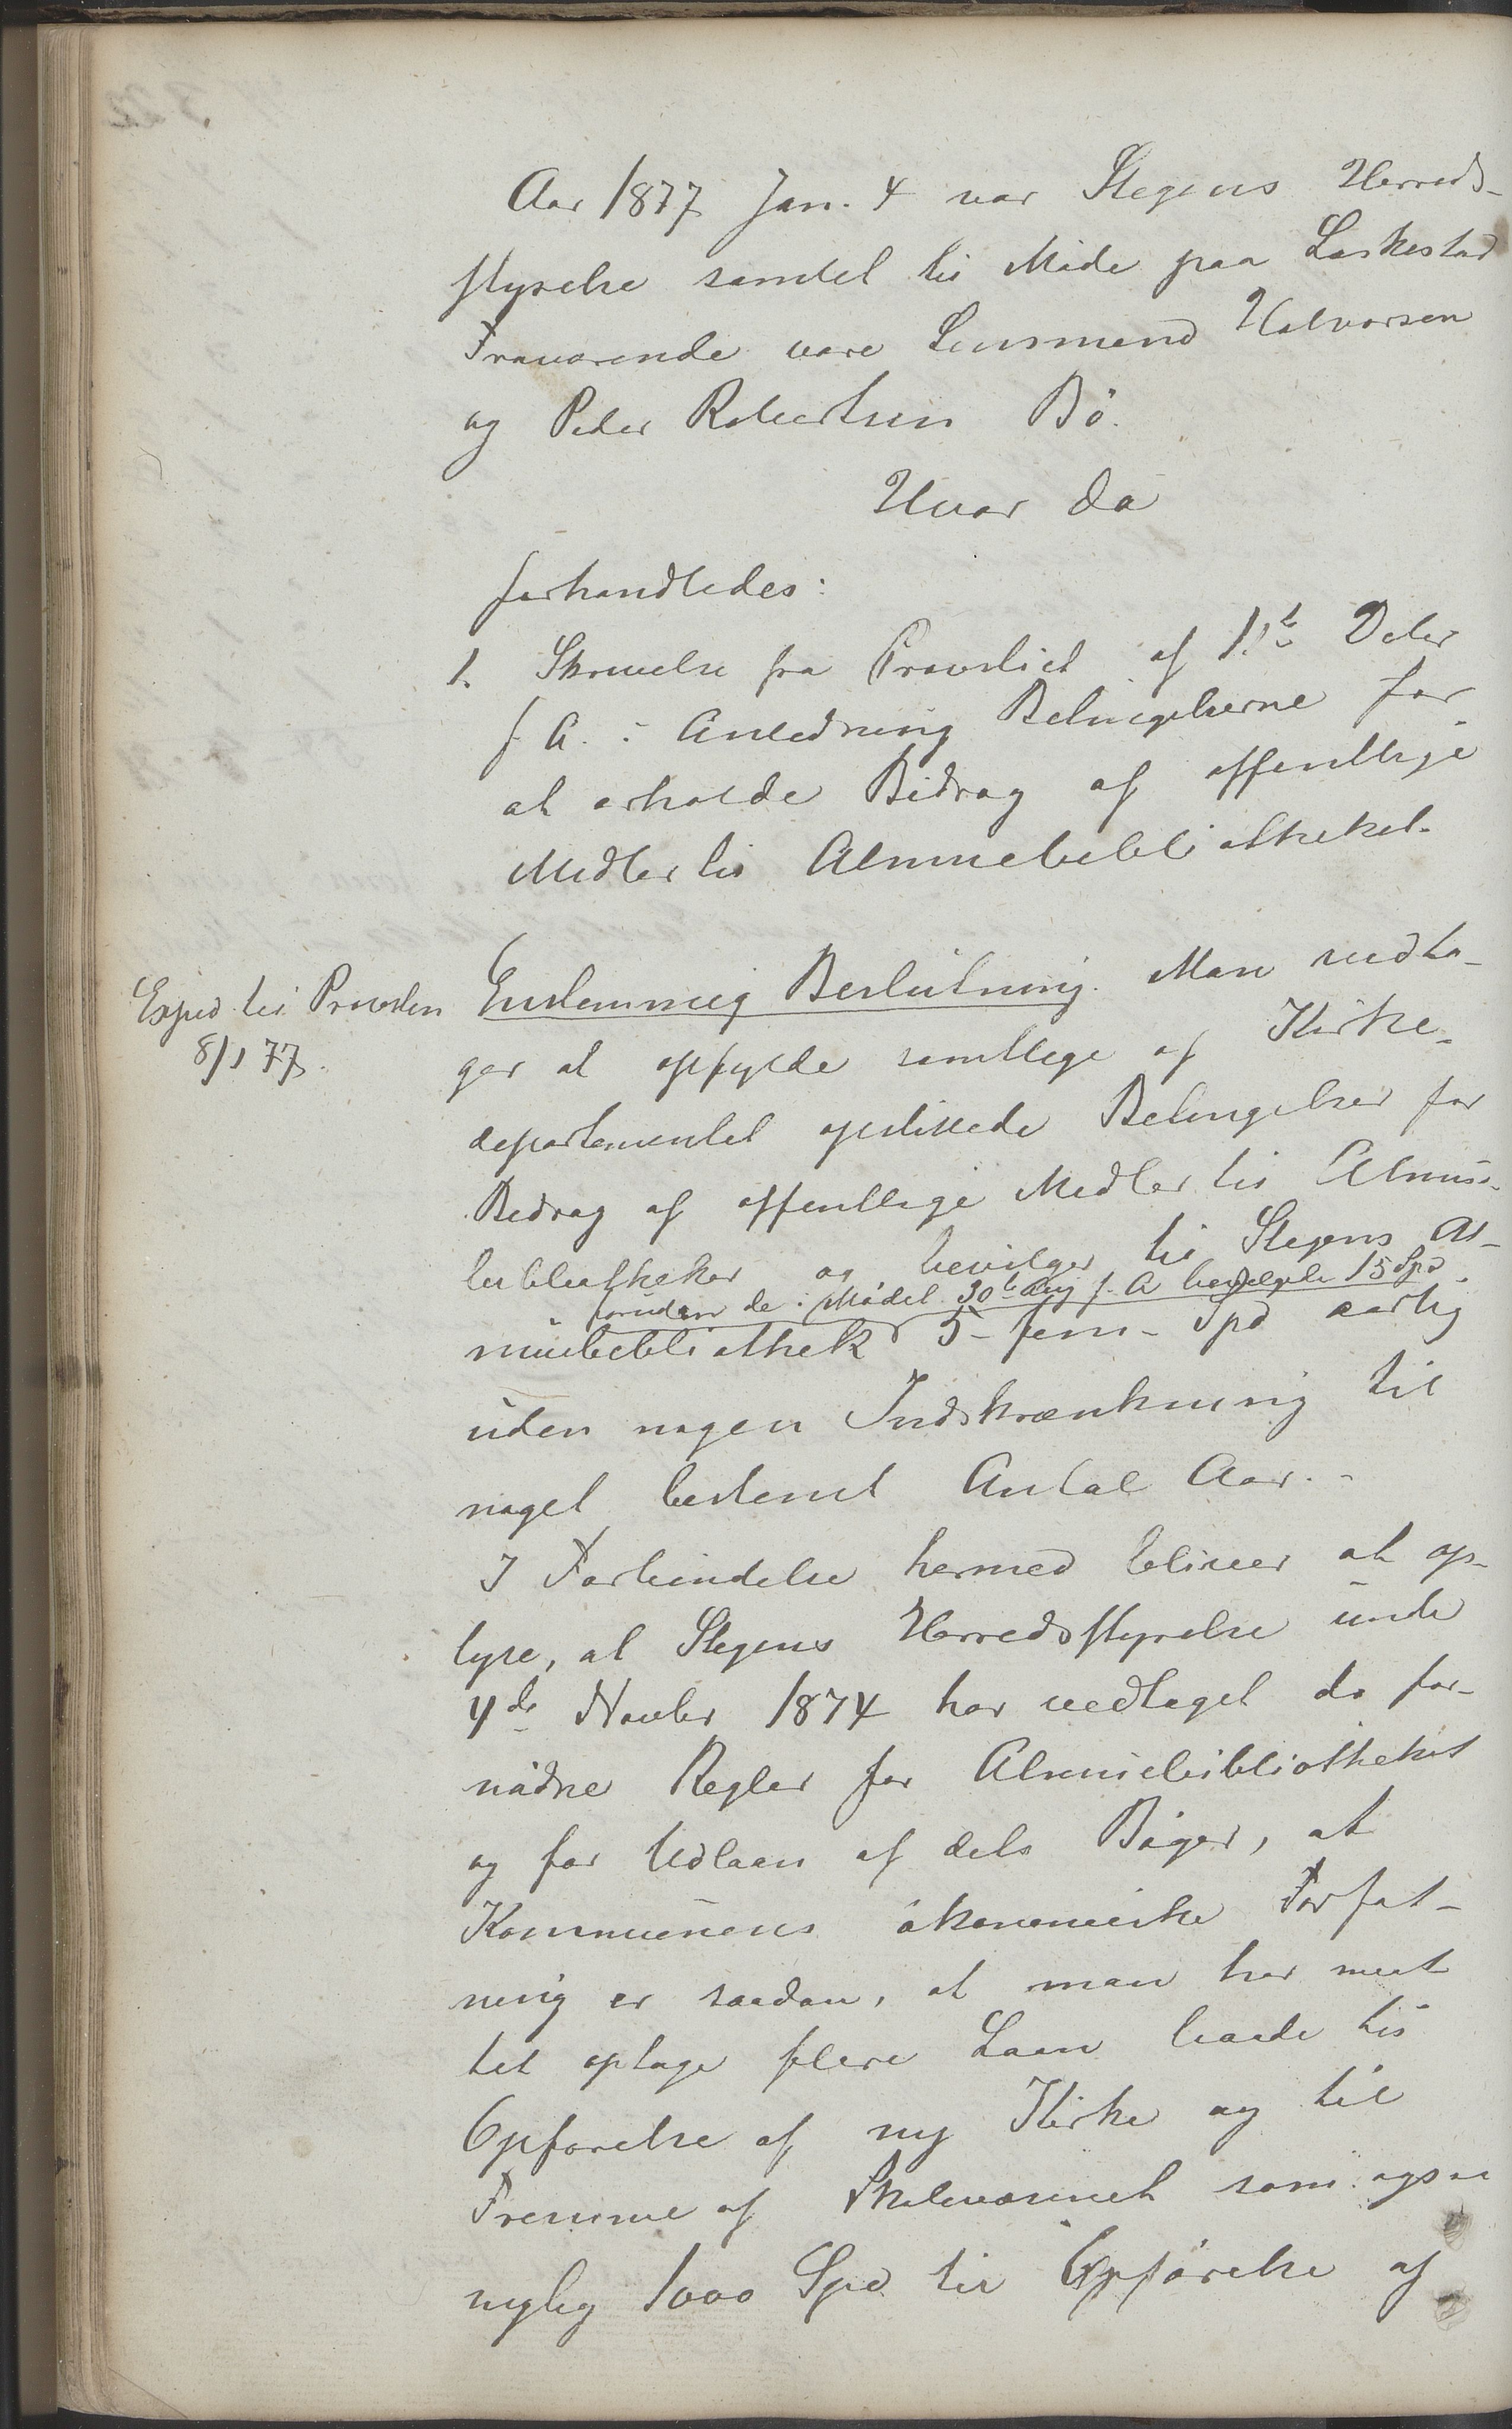 Aar 1877 Jan. 4 var Stegens Herreds-
styrelse samlet til Møde paa Laskestad
Fraværende vare Lensmand Halvorsen
og Peder Robertsen Bö.
Hvor da
forhandledes:
1. Skrivelse fra Provstiet af Decbr
f. A. i Anledning Betingelserne for
at erholde Bidrag af offentlige
Midler til Almuebibliotheket.
Exped til Provsten
8/1 77.
Enstemmig Beslutning. Man vedta-
ger at opfylde samtlige af Kirke-
departementet opstillede Betingelser for
Bidrag af offentlige Midler til Almue-
bibliotheker og bevilger til Stegens Al-
foruden de i Mødet 30te Aug f. A bevilgede 15 Spd
muebibliothek 5 - fem - Spd aarlig
uden nogen Indskrænkning til
noget bestemt Antal Aar. -
I Forbindelse hermed bliver at op-
lyse, at Stegens Herredsstyrelse unde
4de Novbr 1874 har vedtaget de for-
nødne Regler for Almuebibliotheket
og for Udlaan af dets Bøger, at
Kommunens økonomiske Forfat-
ning er saadan, at man har maat
tet optage flere Laan baade til
Opførelse af ny Kirke og til
Fremme af Skolevæsenet som ogsaa
nylig 1000 Spd til Opførelse af